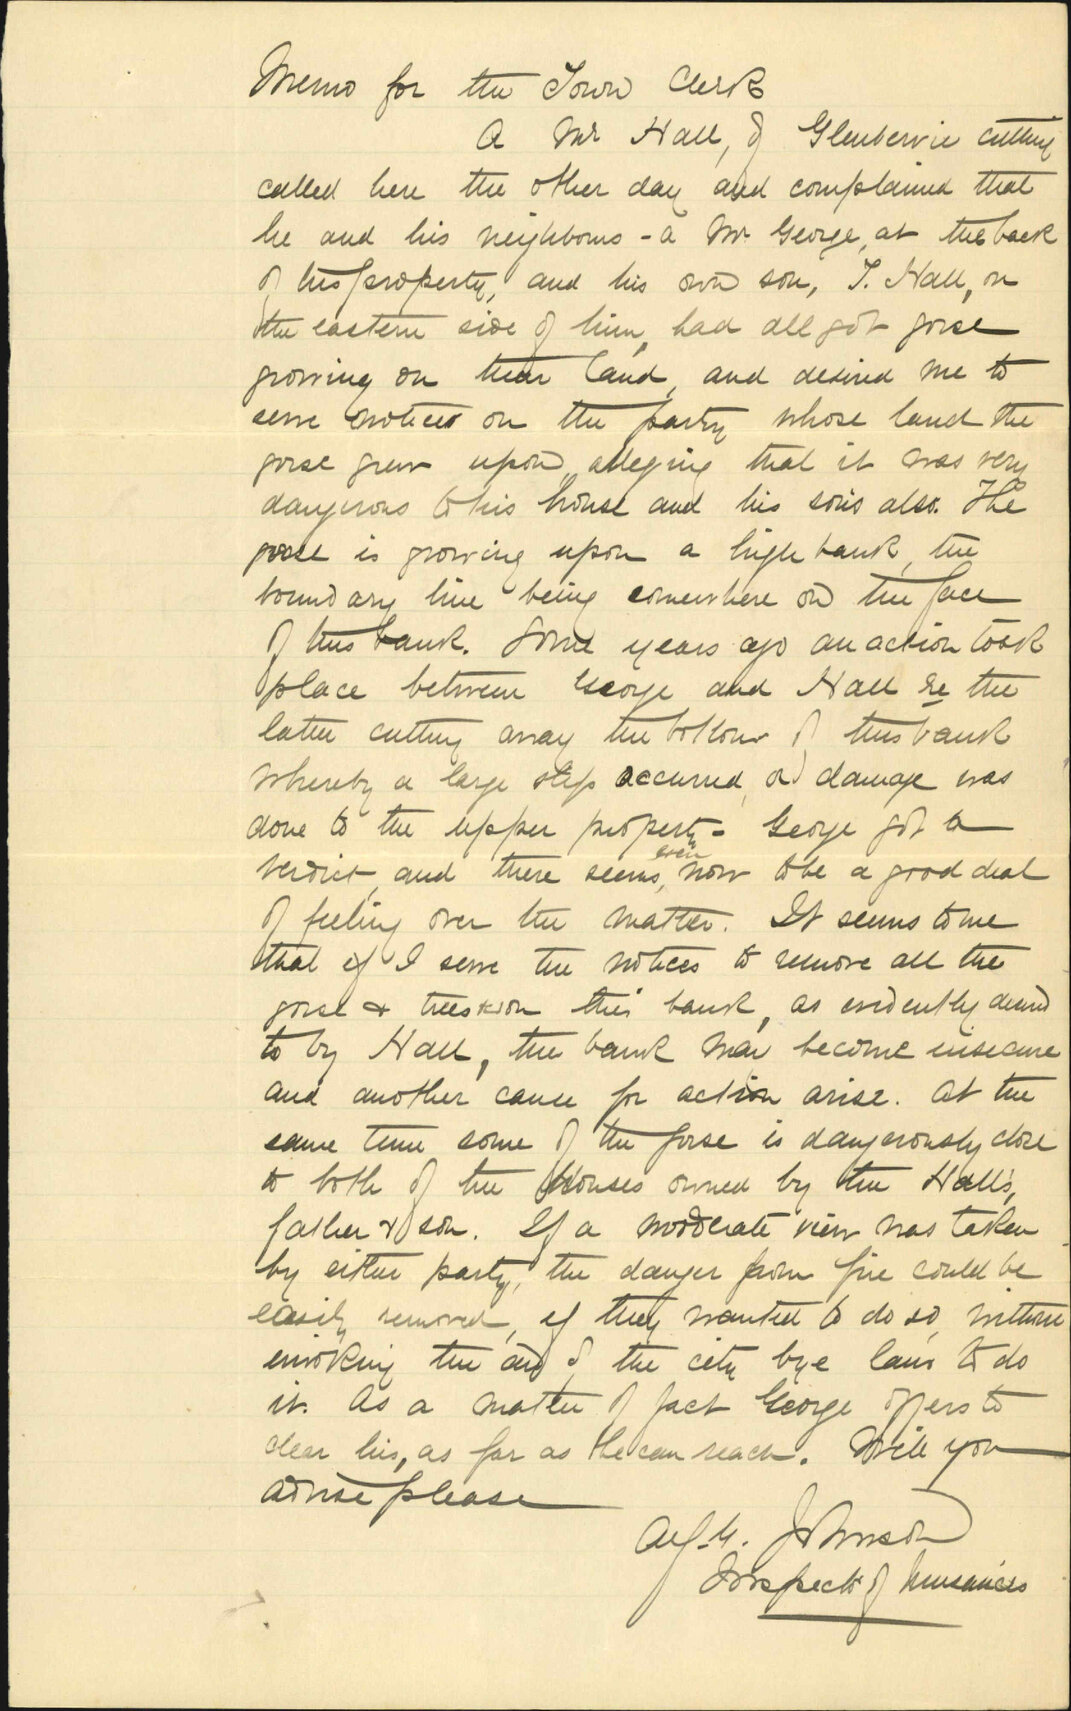 Memo for the Town Clerk
A Mr Hall, of Glenbervie cutting
called here the other day and complained that
he and his neighbours - a Mr George, at the back
of his property, and his own son, T. Hall, on
the eastern side of him, had all got gorse
growing on their land, and desired me to
serve notices on the party whose land the
gorse grew upon, alleging that it was very
dangerous to his house and his son's also. The
gorse is growing upon a high bank, the
boundary line being somewhere on the face
of this bank. Some years ago an action took
place between George and Hall re the
latter cutting away the bottom of this bank
whereby a large slip occurred, and damage was
done to the upper property - George got a
verdict, and there seems, even now to be a good deal
of feeling over the matter. It seems to me
that if I serve the notices to remove all the
gorse & trees on this bank, as evidently desired
to by Hall, the bank may become insecure
and another cause for action arise. At the
same time some of the gorse is dangerously close
to both of the Houses owned by the Hall's,
father & son. If a moderate view was taken
by either party, the danger from fire could be
easily removed, if they wanted to do so, without
invoking the aid of the city bye laws to do
it. As a matter of fact George offers to
clear his, as far as he can reach. Will you
advise please
Johnson
Inspector of Nuisances